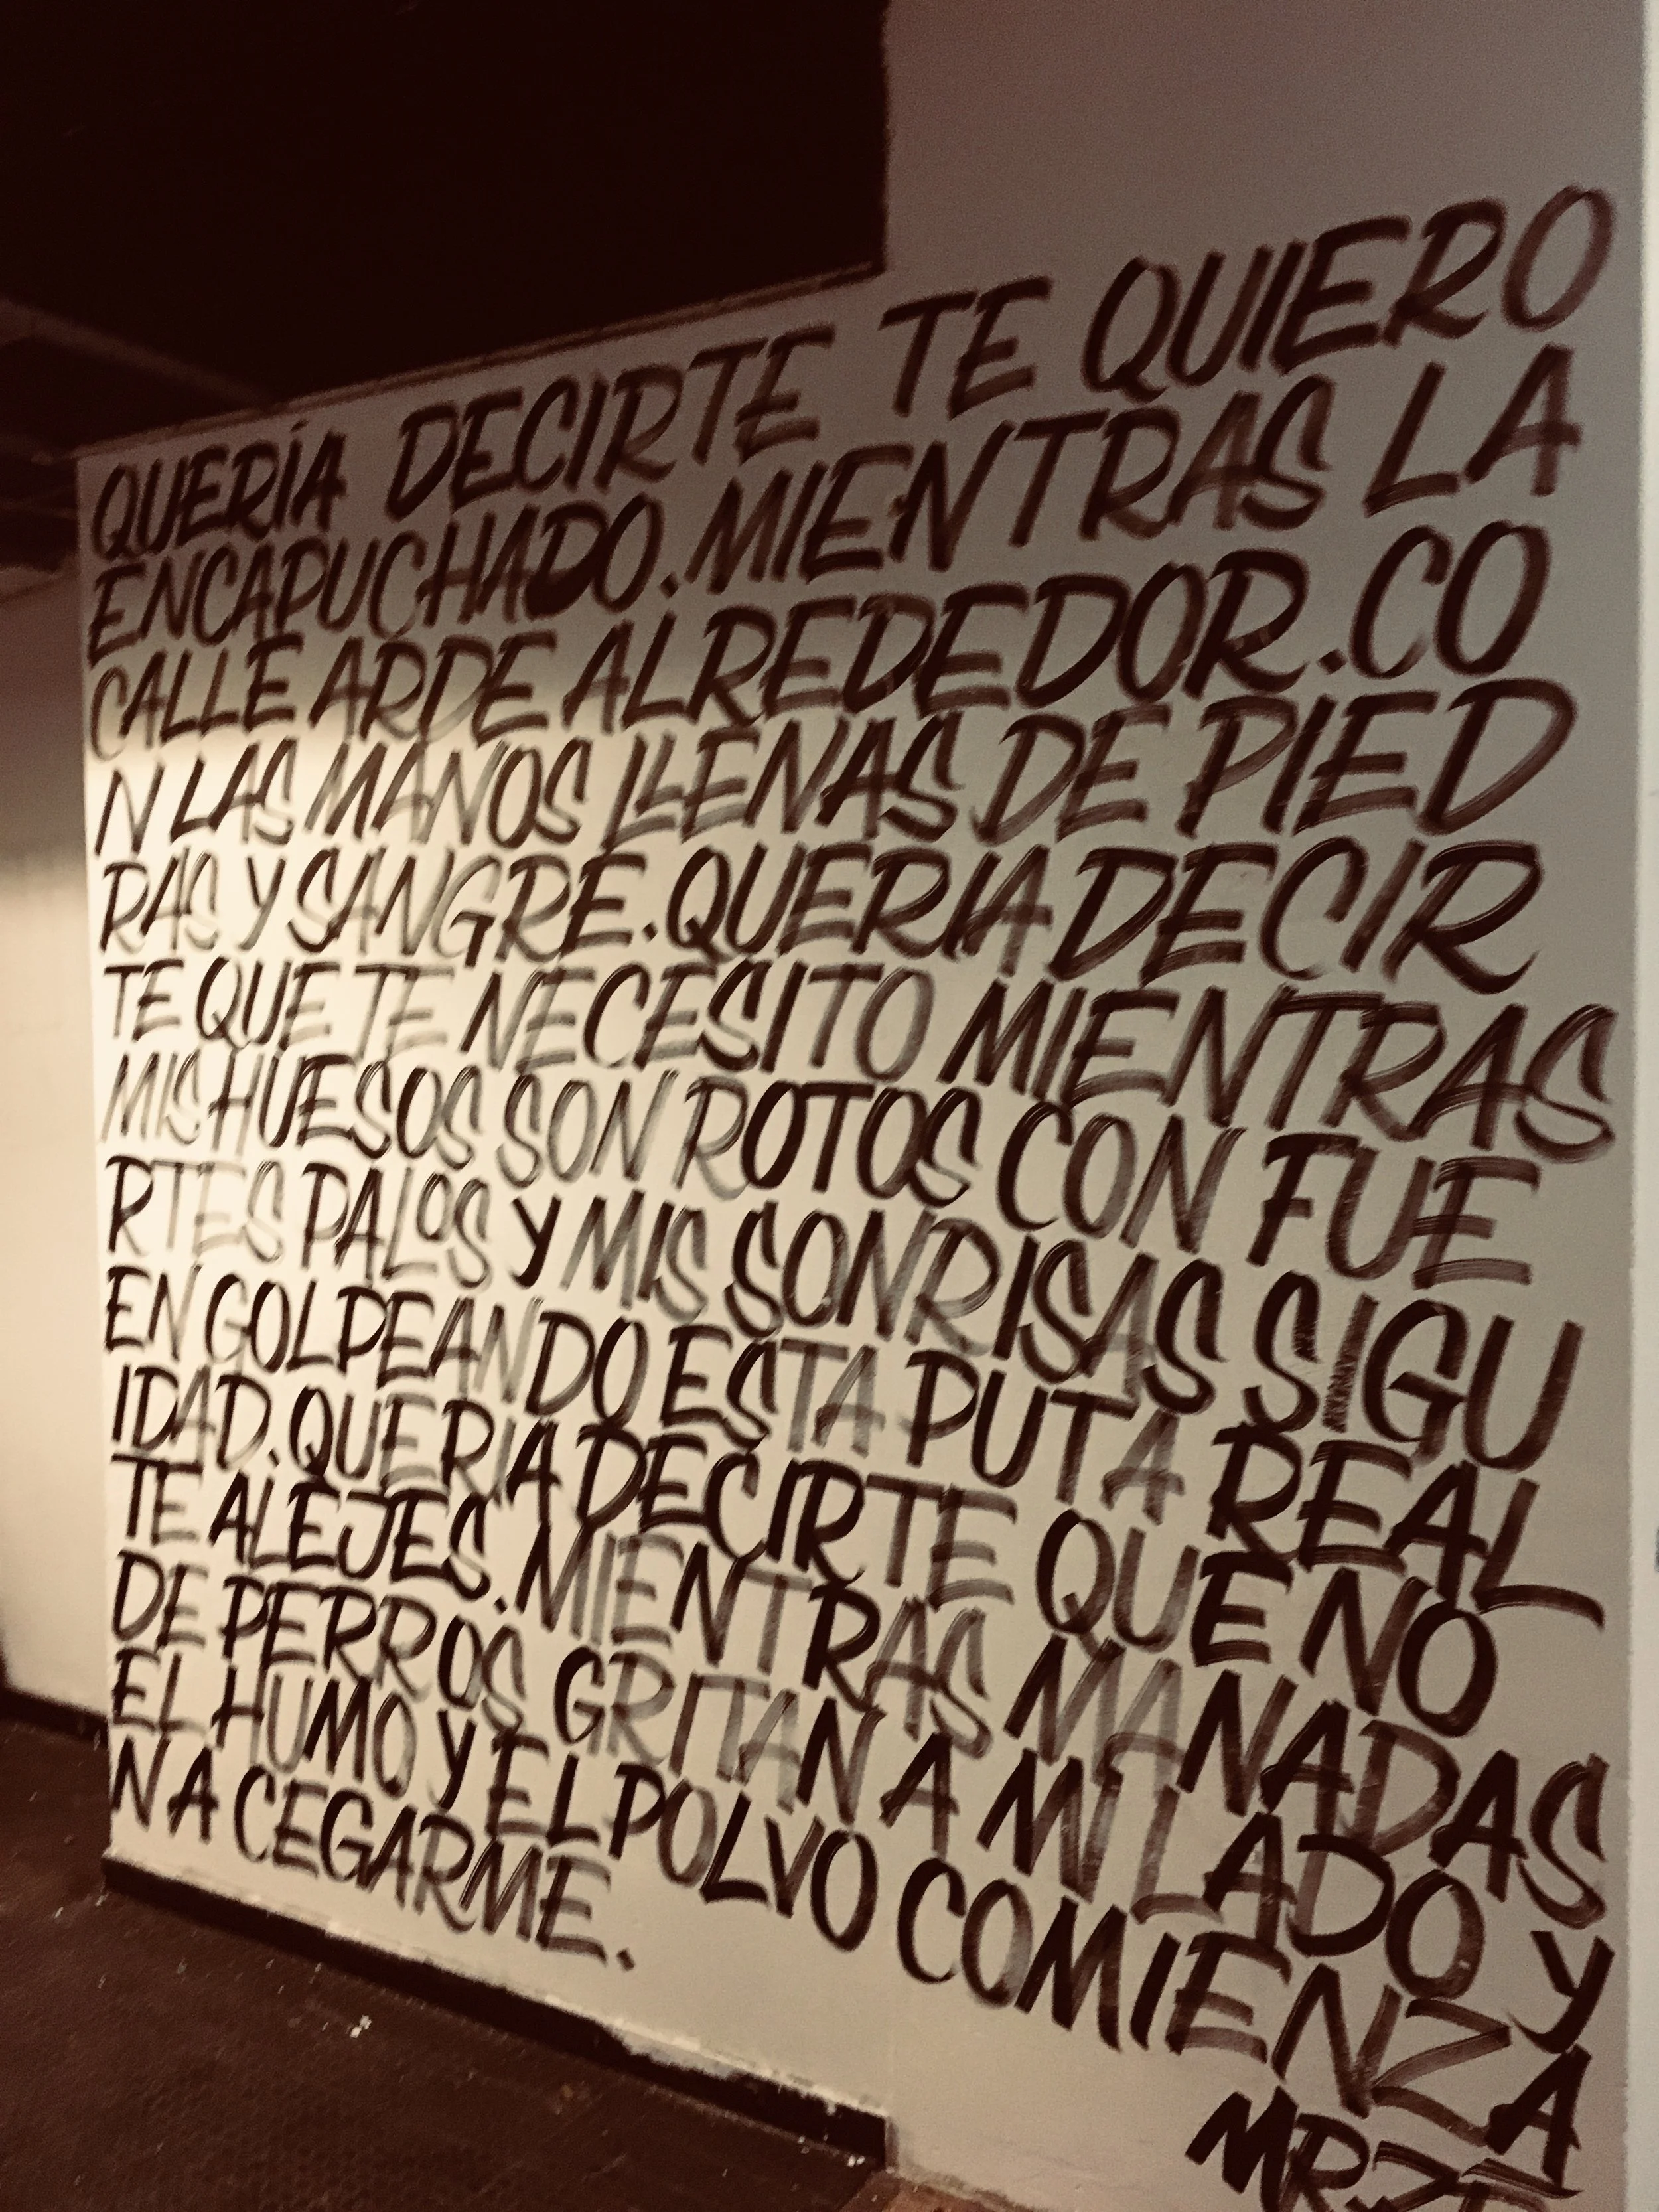 QUERÍA DECIRTE TE QUIERO
ENCAPUCHADO. MIENTRAS LA
CALLE ARDE ALREDEDOR. CO
N LAS MANOS LLENAS DE PIED
RAS Y SANGRE. QUERIA DECIR
TE QUE TE NECESITO MIENTRAS
MIS HUESOS SON ROTOS CON FUE
RTES PALOS Y MIS SONRISAS SIGU
EN GOLPEANDO ESTA PUTA REAL
IDAD. QUERIA DECIRTE QUE NO
TE ALEJES. MIENTRAS MANADAS
DE PERROS GRITAN A MI LADO Y
EL HUMO Y EL POLVO COMIENZA
N A CEGARME.